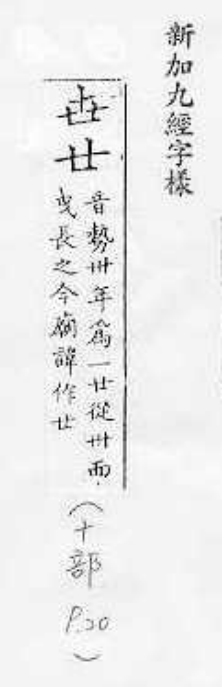 新加九經字樣
卋廿
音勢卅年爲一廿從卅而
曳長之今廟諱作廿
(十部 P.20)